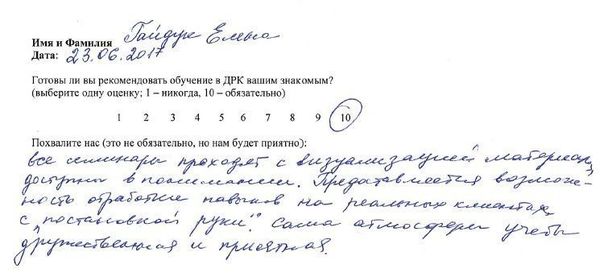 Имя и Фамилия Гайдук Елена
Дата: 23.06.2017
Готовы ли вы рекомендовать обучение в ДРК вашим знакомым?
(выберите одну оценку; 1 – никогда, 10 – обязательно)
1 2 3 4 5 6 7 8 9 10
Похвалите нас (это не обязательно, но нам будет приятно):
все семинары проходят с визуализацией материал,
доступны в понимании. Предоставляется возмож-
ность отработки навыков на реальных клиентах,
с „постановкой руки". Сама атмосфера учебы
дружественная и приятная.